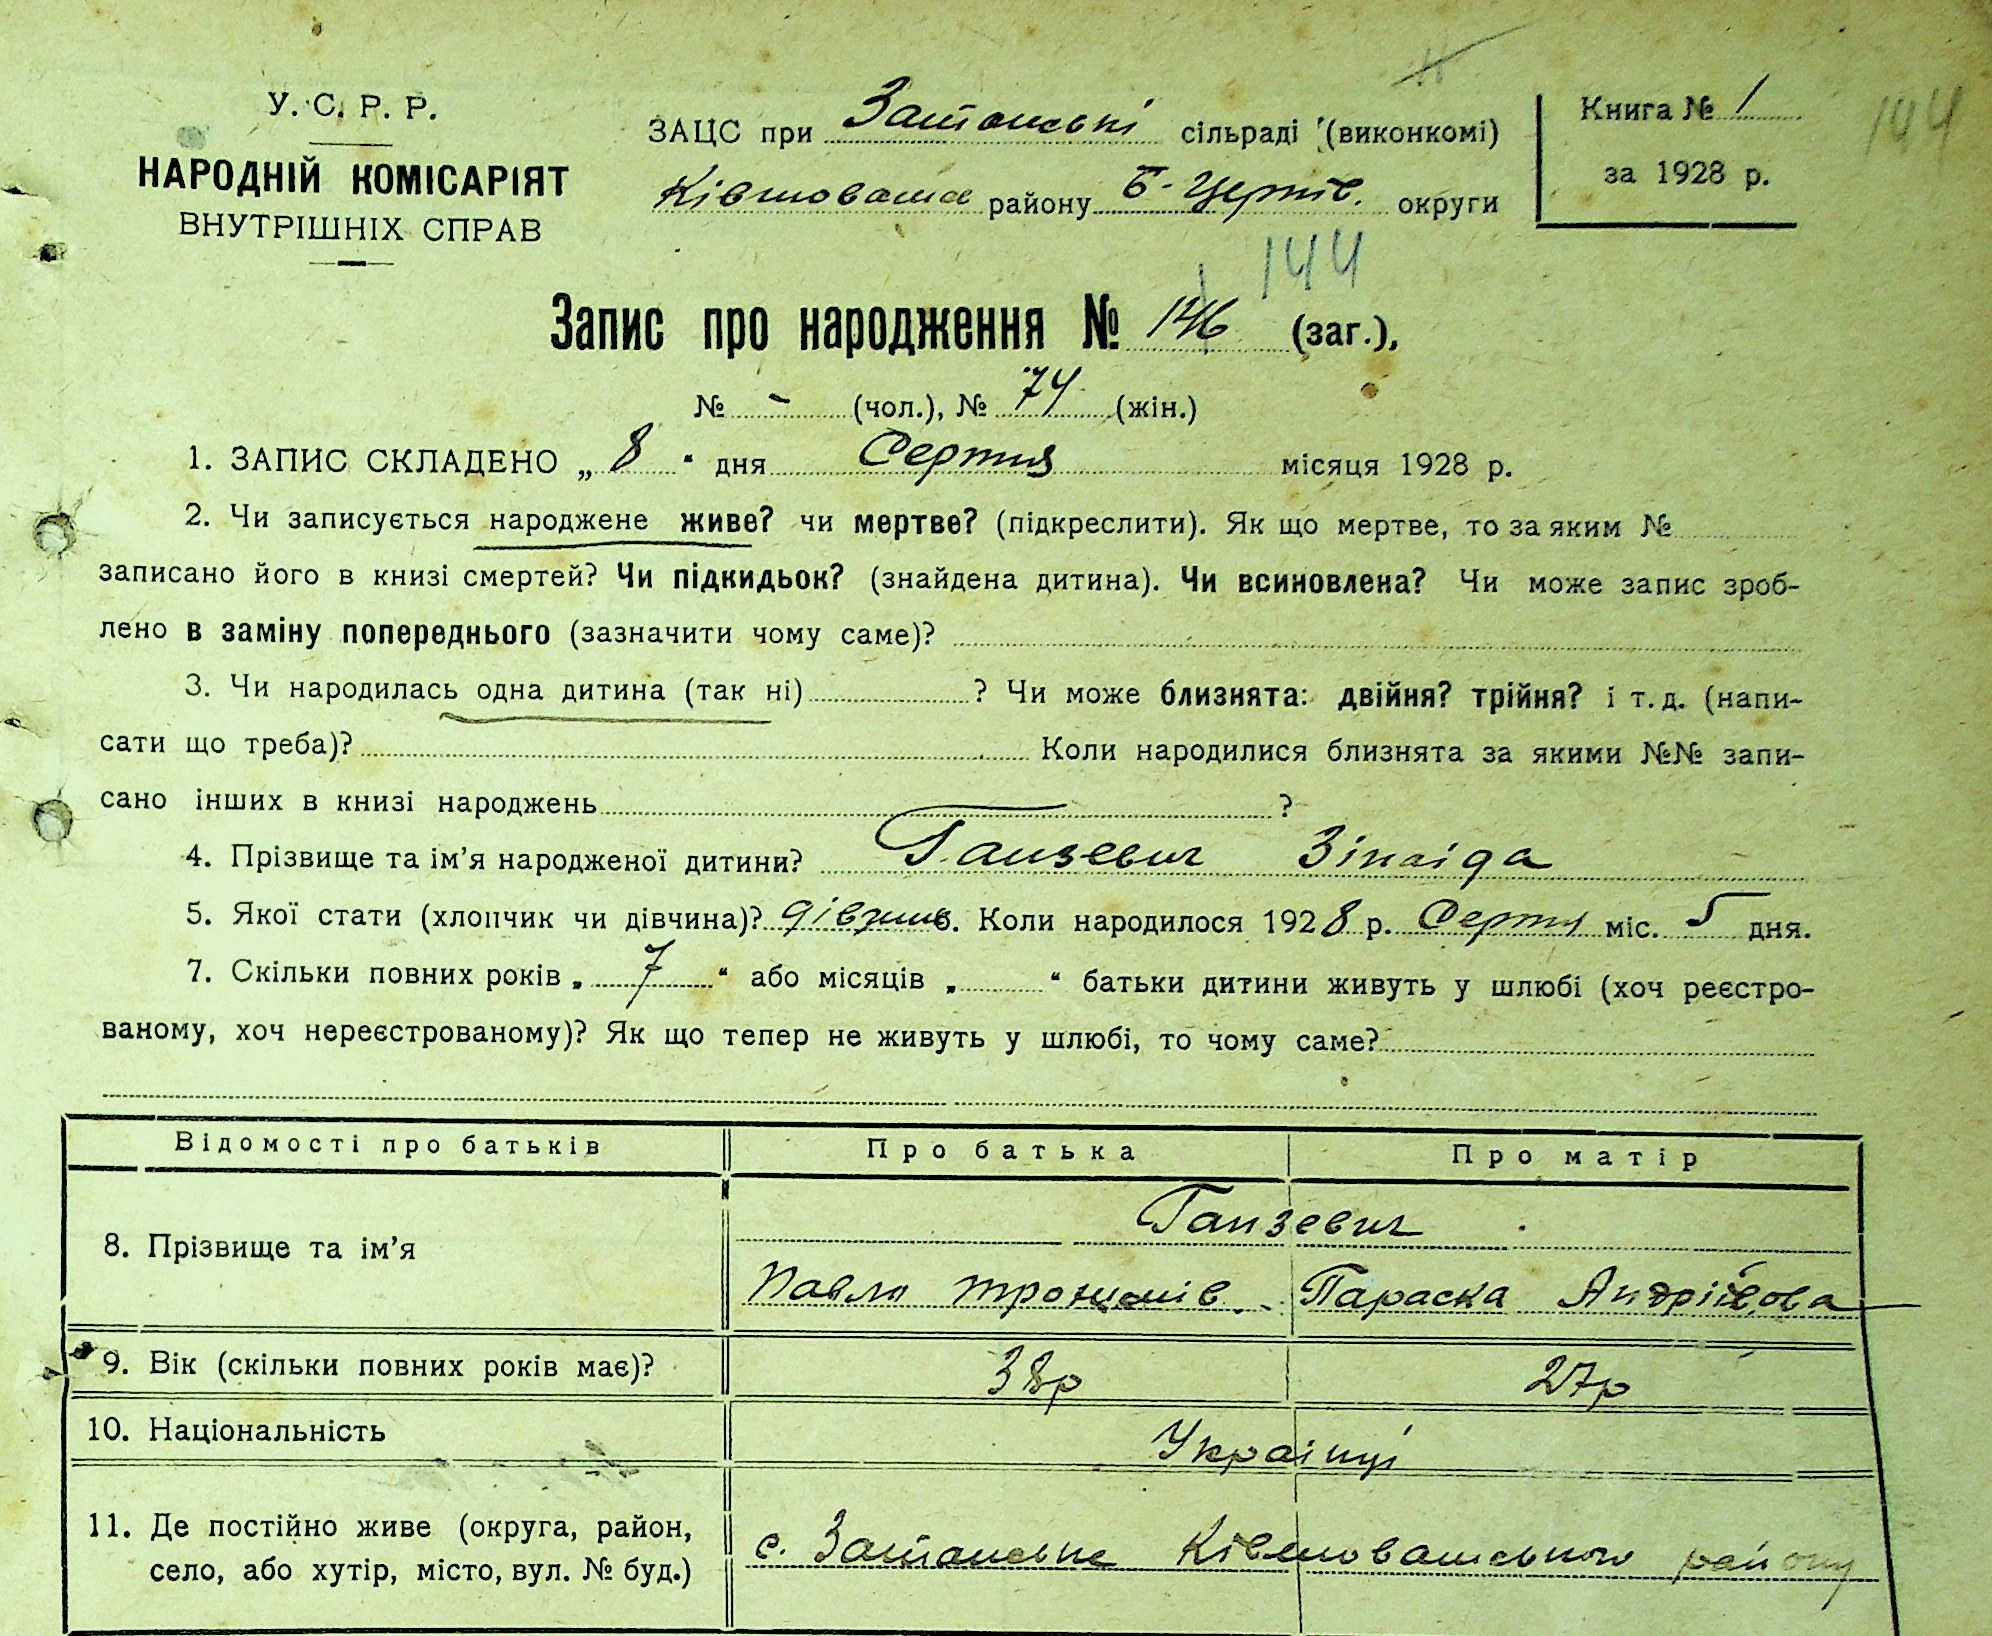 У. С. Р. Р.
НАРОДНІЙ КОМІСАРІЯТ
ВНУТРІШНІХ СПРАВ
ЗАЦС при сільраді (виконкомі)
району Б-Церків. округи
Книга № 1
за 1928 р.
144
144
Запис про народження № 146 (заг.),
№ - (чол.), № 74 (жін.)
1. ЗАПИС СКЛАДЕНО „ 8 “ дня Серпня місяця 1928 р.
2. Чи записується народжене живе? чи мертве? (підкреслити). Як що мертве, то за яким №
записано його в книзі смертей? Чи підкидьок? (знайдена дитина). Чи всиновлена? Чи може запис зроб-
лено в заміну попереднього (зазначити чому саме)?
3. Чи народилась одна дитина (так ні) ? Чи може близнята: двійня? трійня? і т. д. (напи-
сати що треба)? Коли народилися близнята за якими №№ запи-
сано інших в книзі народжень ?
4. Прізвище та ім’я народженої дитини? Ганзевич Зінаіда
5. Якої стати (хлопчик чи дівчина)? дівчина. Коли народилося 1928 р. Серпня міс. 5 дня.
7. Скільки повних років „ 7 “ або місяців „ “ батьки дитини живуть у шлюбі (хоч реєстро-
ваному, хоч нереєстрованому)? Як що тепер не живуть у шлюбі, то чому саме?
Відомості про батьків Про батька Про матір
8. Прізвище та ім’я Ганзевич
Павло Параска Андрійова
9. Вік (скільки повних років має)? 38р 27р
10. Національність Українці
11. Де постійно живе (округа, район,
село, або хутір, місто, вул. № буд.)
с. району